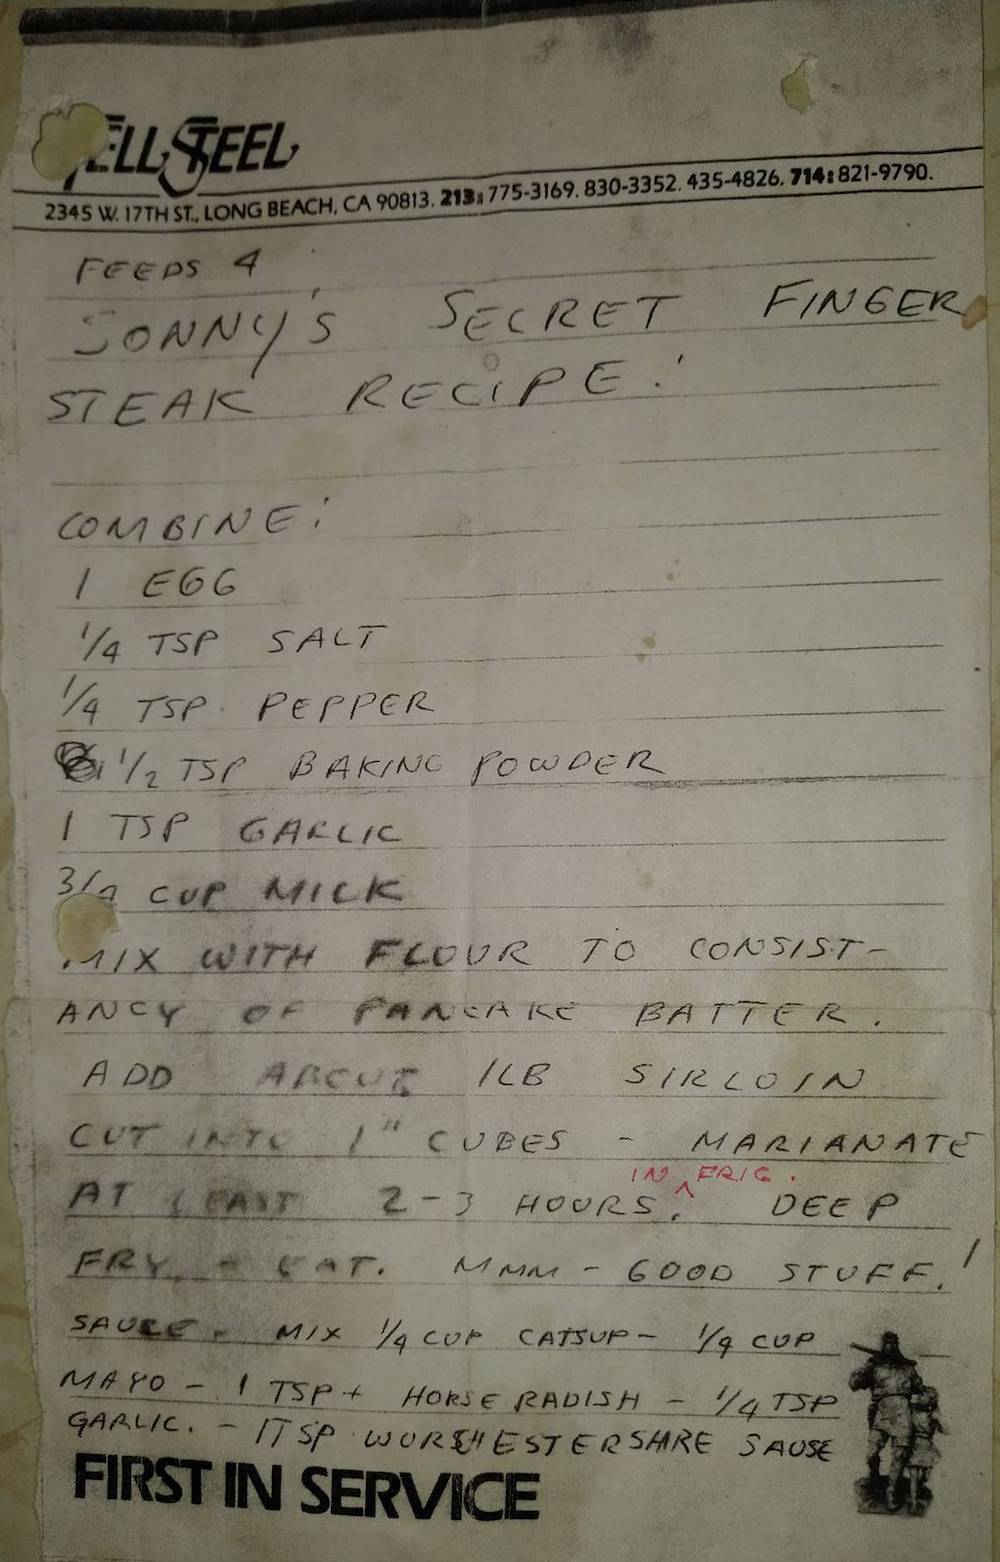 ELL STEEL
2345 W. 17TH ST., LONG BEACH, CA 90813. 213: 775-3169. 830-3352. 435-4826. 714: 821-9790.
FEEDS 4
JONNY'S SECRET FINGER
STEAK RECIPE:
COMBINE:
1 EGG
1/4 TSP SALT
1/4 TSP. PEPPER
1/2 TSP BAKING POWDER
1 TSP GARLIC
3/4 CUP MILK
MIX WITH FLOUR TO CONSIST-
ANCY OF PANCAKE BATTER.
ADD ABOUT 1LB SIRLOIN
CUT INTO 1" CUBES - MARIANATE
IN FRIG.
AT LEAST 2-3 HOURS. DEEP
FRY + EAT. MMM - GOOD STUFF!
SAUCE - MIX 1/4 CUP CATSUP - 1/4 CUP
MAYO - 1 TSP + HORSE RADISH - 1/4 TSP
GARLIC. - 1TSP WORSHESTERSHIRE SAUSE
FIRST IN SERVICE